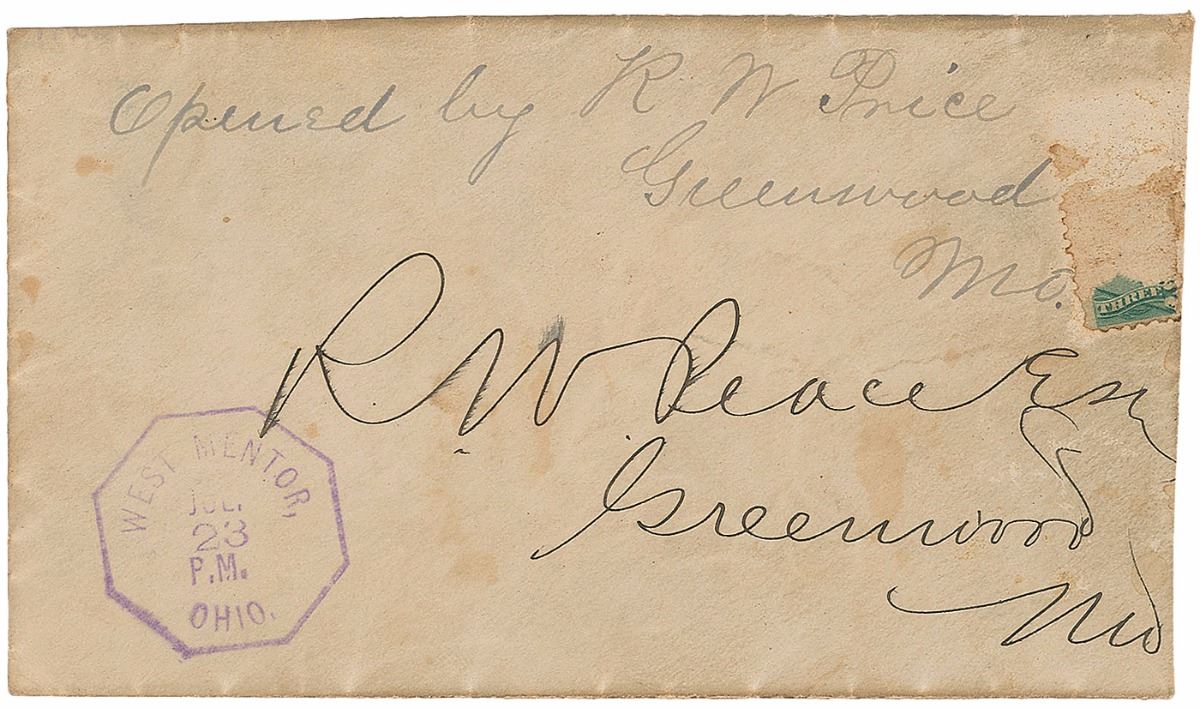 Opened by R W Price
Greenwood
Mo.
THREE
R W Peace Esq
Greenwood
Mo
WEST MENTOR,
JUL.
23
P.M.
OHIO.